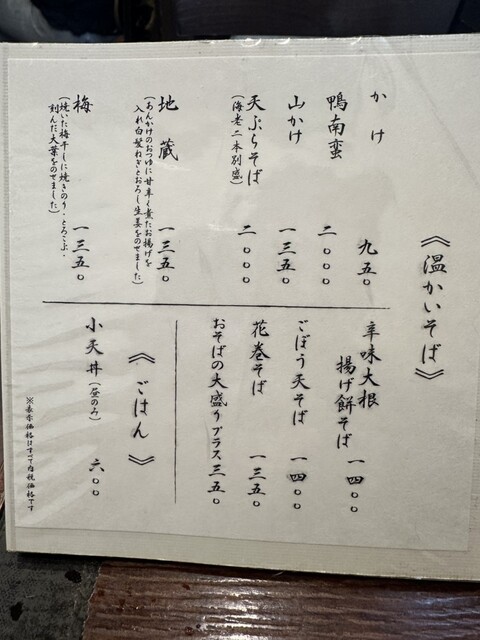 《温かいそば》
かけ 九五〇
鴨南蛮 二〇〇〇
山かけ 一三五〇
天ぷらそば 二〇〇〇
(海老二本別盛)
地蔵 一三五〇
(あんかけのおつゆに甘辛く煮たお揚げを
入れ白髪ねぎとおろし生姜をのせました)
梅 一三五〇
(焼いた梅干しに焼きのり・とろろこぶ・
刻んだ大葉をのせました)
辛味大根
揚げ餅そば 一四〇〇
ごぼう天そば 一四〇〇
花巻そば 一三五〇
おそばの大盛りプラス三五〇
《ごはん》
小天丼(昼のみ) 六〇〇
※表示価格はすべて内税価格です